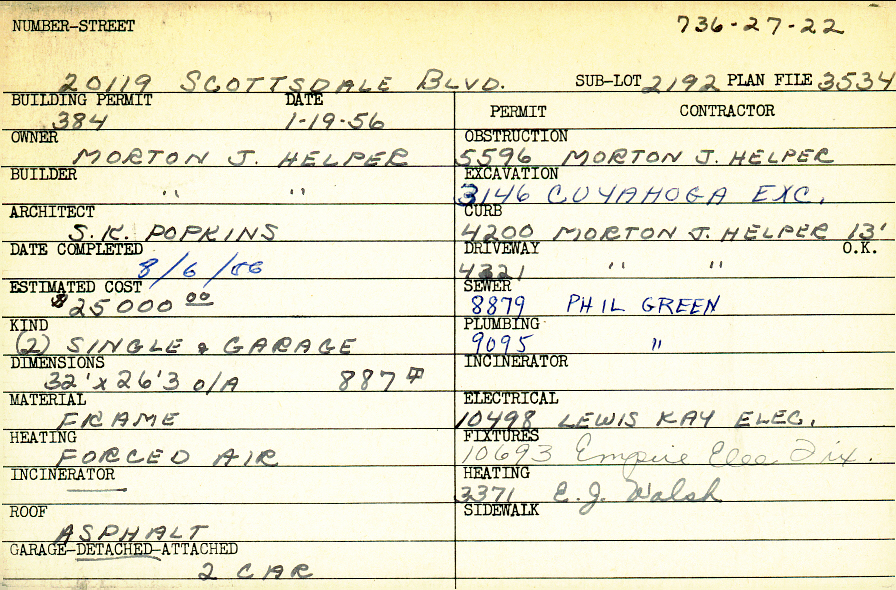 NUMBER-STREET 736-27-22
20119 SCOTTSDALE BLVD. SUB-LOT 2192 PLAN FILE 3534
BUILDING PERMIT DATE
384 1-19-56
OWNER
MORTON J. HELPER
BUILDER
" "
ARCHITECT
S.K. POPKINS
DATE COMPLETED
8/6/56
ESTIMATED COST
$25000 00
KIND
(2) SINGLE & GARAGE
DIMENSIONS
32' x 26'3 O/A 887 ⏍
MATERIAL
FRAME
HEATING
FORCED AIR
INCINERATOR
—
ROOF
ASPHALT
GARAGE-DETACHED-ATTACHED
2 CAR
PERMIT CONTRACTOR
OBSTRUCTION
5596 MORTON J. HELPER
EXCAVATION
3146 CUYAHOGA EXC.
CURB
4200 MORTON J. HELPER 13'
DRIVEWAY O.K.
4321 " "
SEWER
8879 PHIL GREEN
PLUMBING
9095 "
INCINERATOR
ELECTRICAL
10498 LEWIS KAY ELEC.
FIXTURES
10693 Empire Elec Fix.
HEATING
3371 E.J. Walsh
SIDEWALK